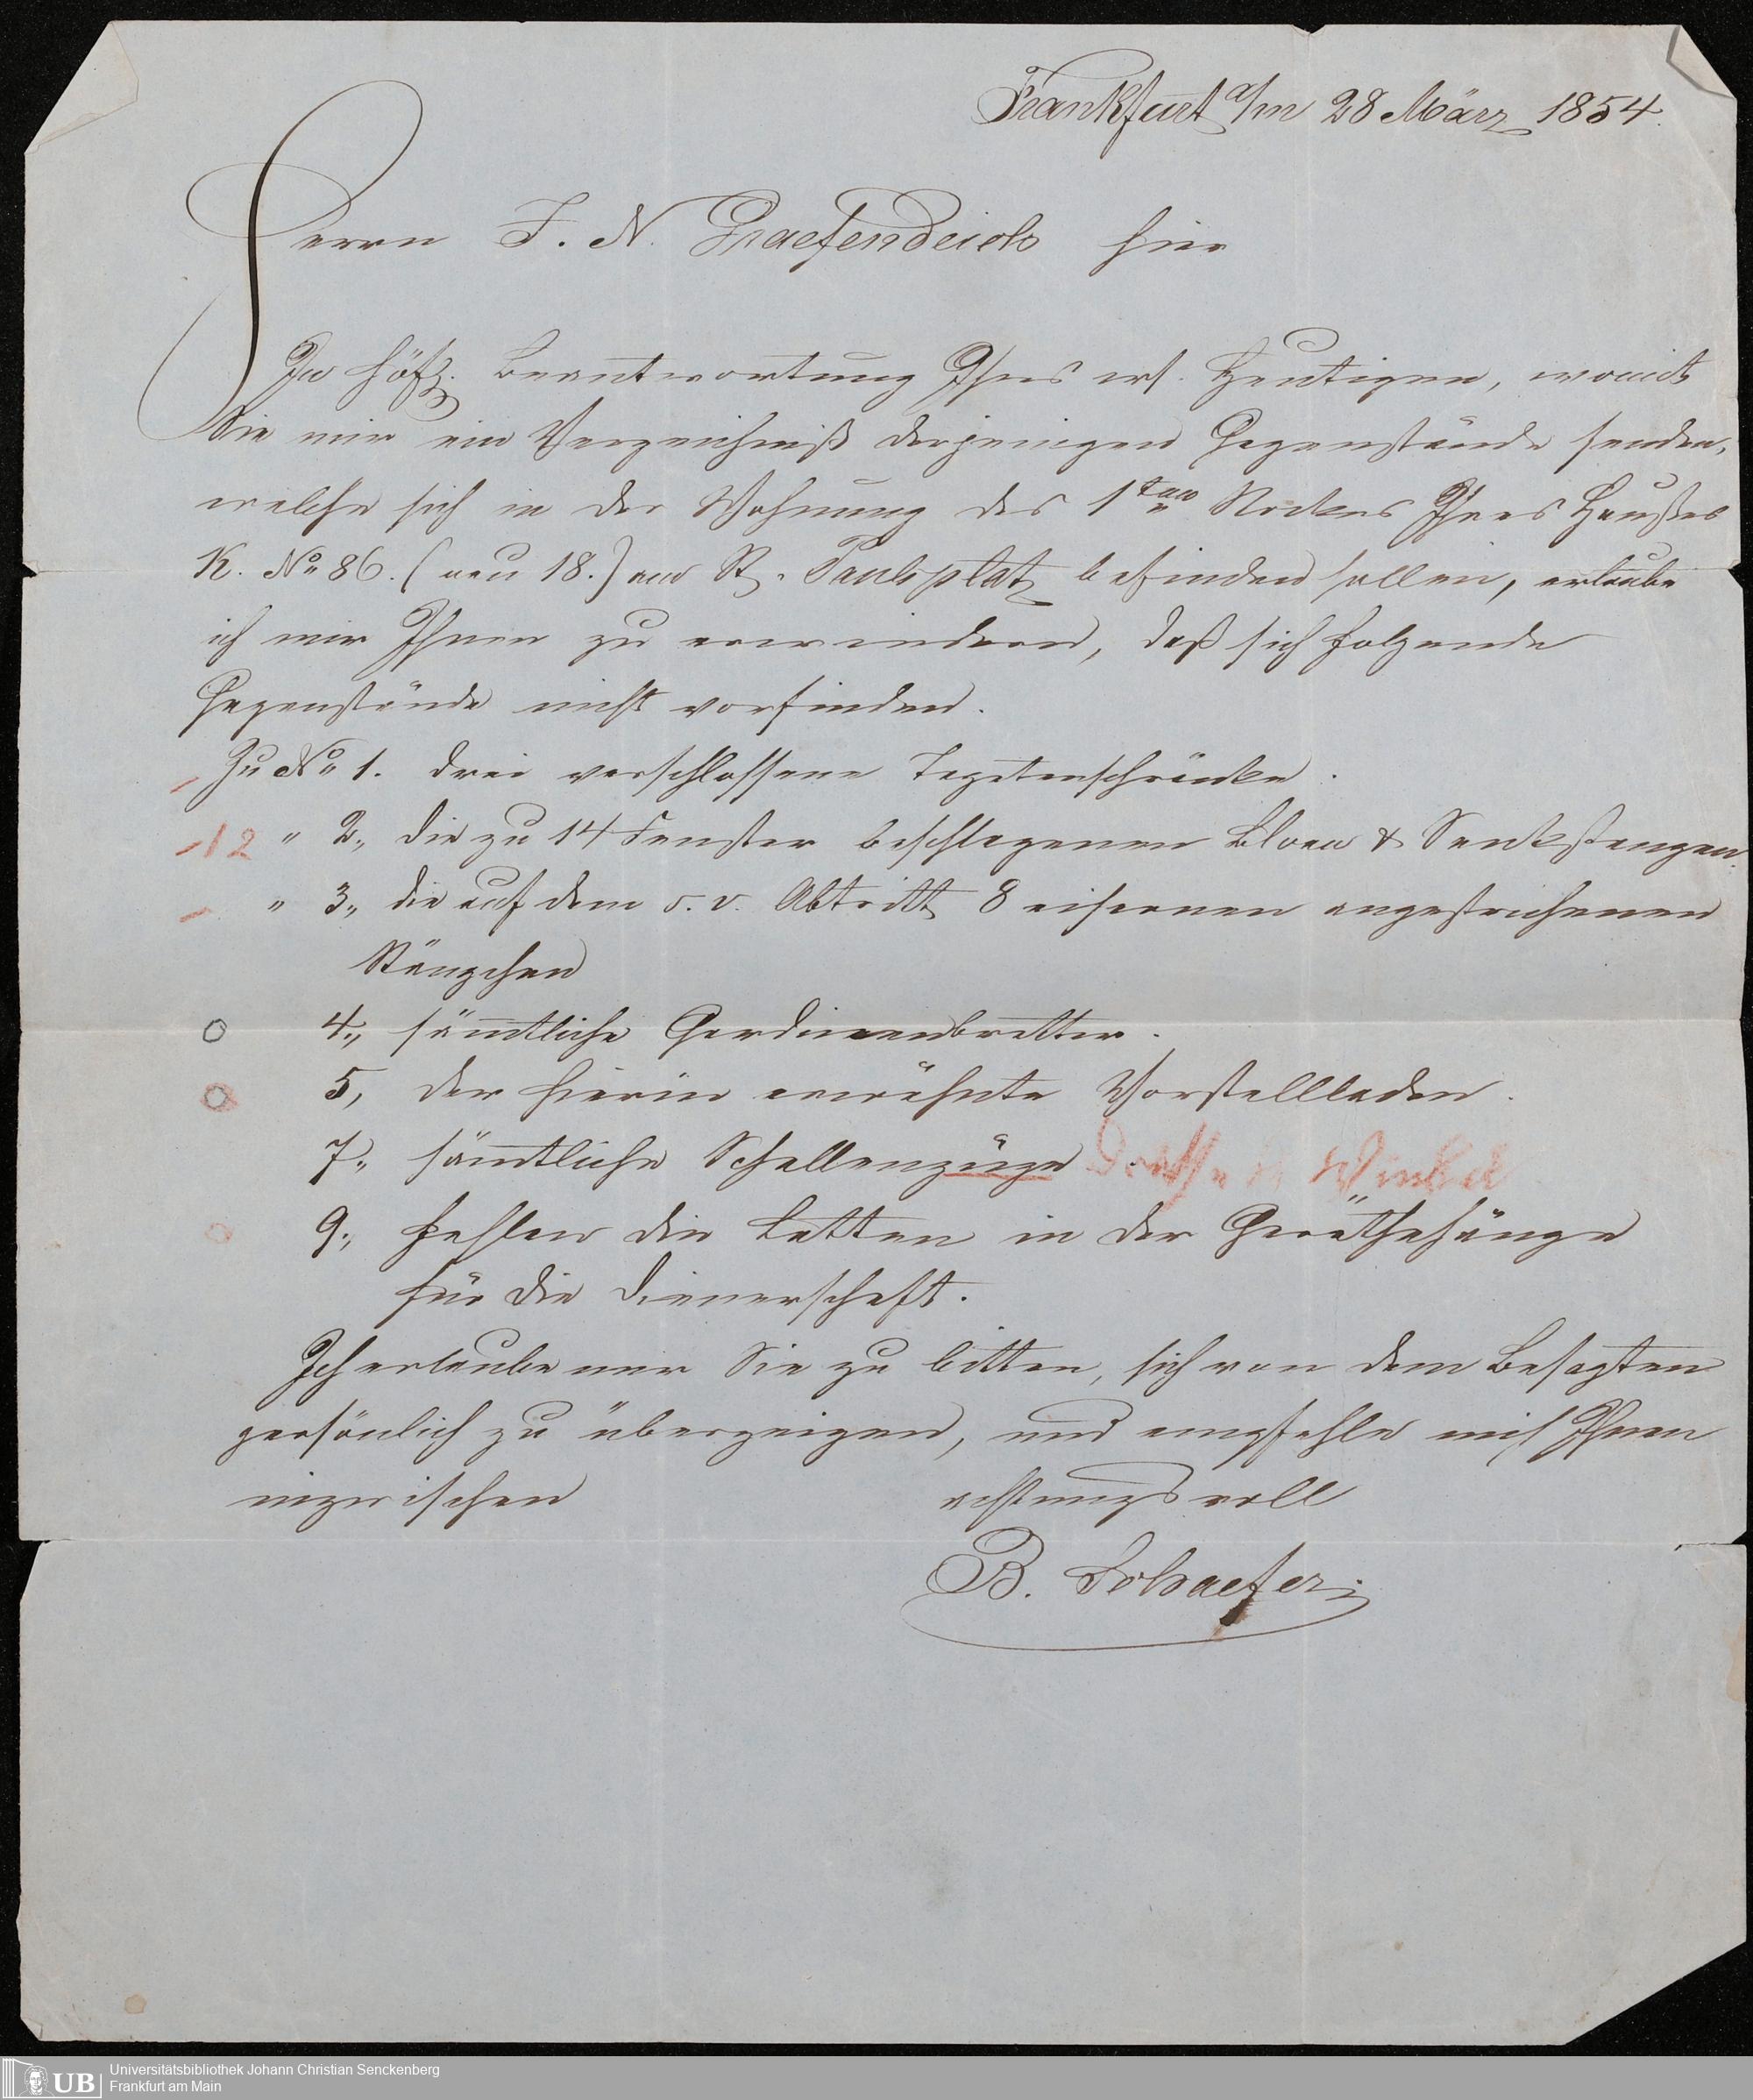 Frankfurt a/m 28 März 1854.
Herrn J. N. Graefendeich hier
In höfl. Beantwortung Ihres erh. Heutigen, womit
Sie mir ein Verzeichniß derjenigen Gegenstände senden,
welche sich in der Wohnung des 1ten Stockes Ihres Haußes
K. No 86. (neu 18.) am St. Paulsplatz befinden sollen, erlaube
ich mir Ihnen zu erwiedern, daß sich folgende
Gegenstände nicht vorfinden.
Zu No 1. drei verschlossene Tapetenschränke.
12 " 2., die zu 14 Fenster beschlagenen & Senkstangen.
" 3., die auf dem s. v. Abtritt 8 eisernen angestrichenen
Stängchen
4., sämtliche Gardinenbretter.
5, der hierin erwähnte Vorstellladen.
7., sämtliche Schellenzüge. Winkel
9., fehlen die Latten in der Geräthehänge
für die Dienerschaft.
Ich erlaube mir Sie zu bitten, sich von dem Besagten
persönlich zu überzeigen, und empfehle mich Ihnen
inzwischen achtungsvoll
B. Schaefer
UB Universitätsbibliothek Johann Christian Senckenberg
Frankfurt am Main